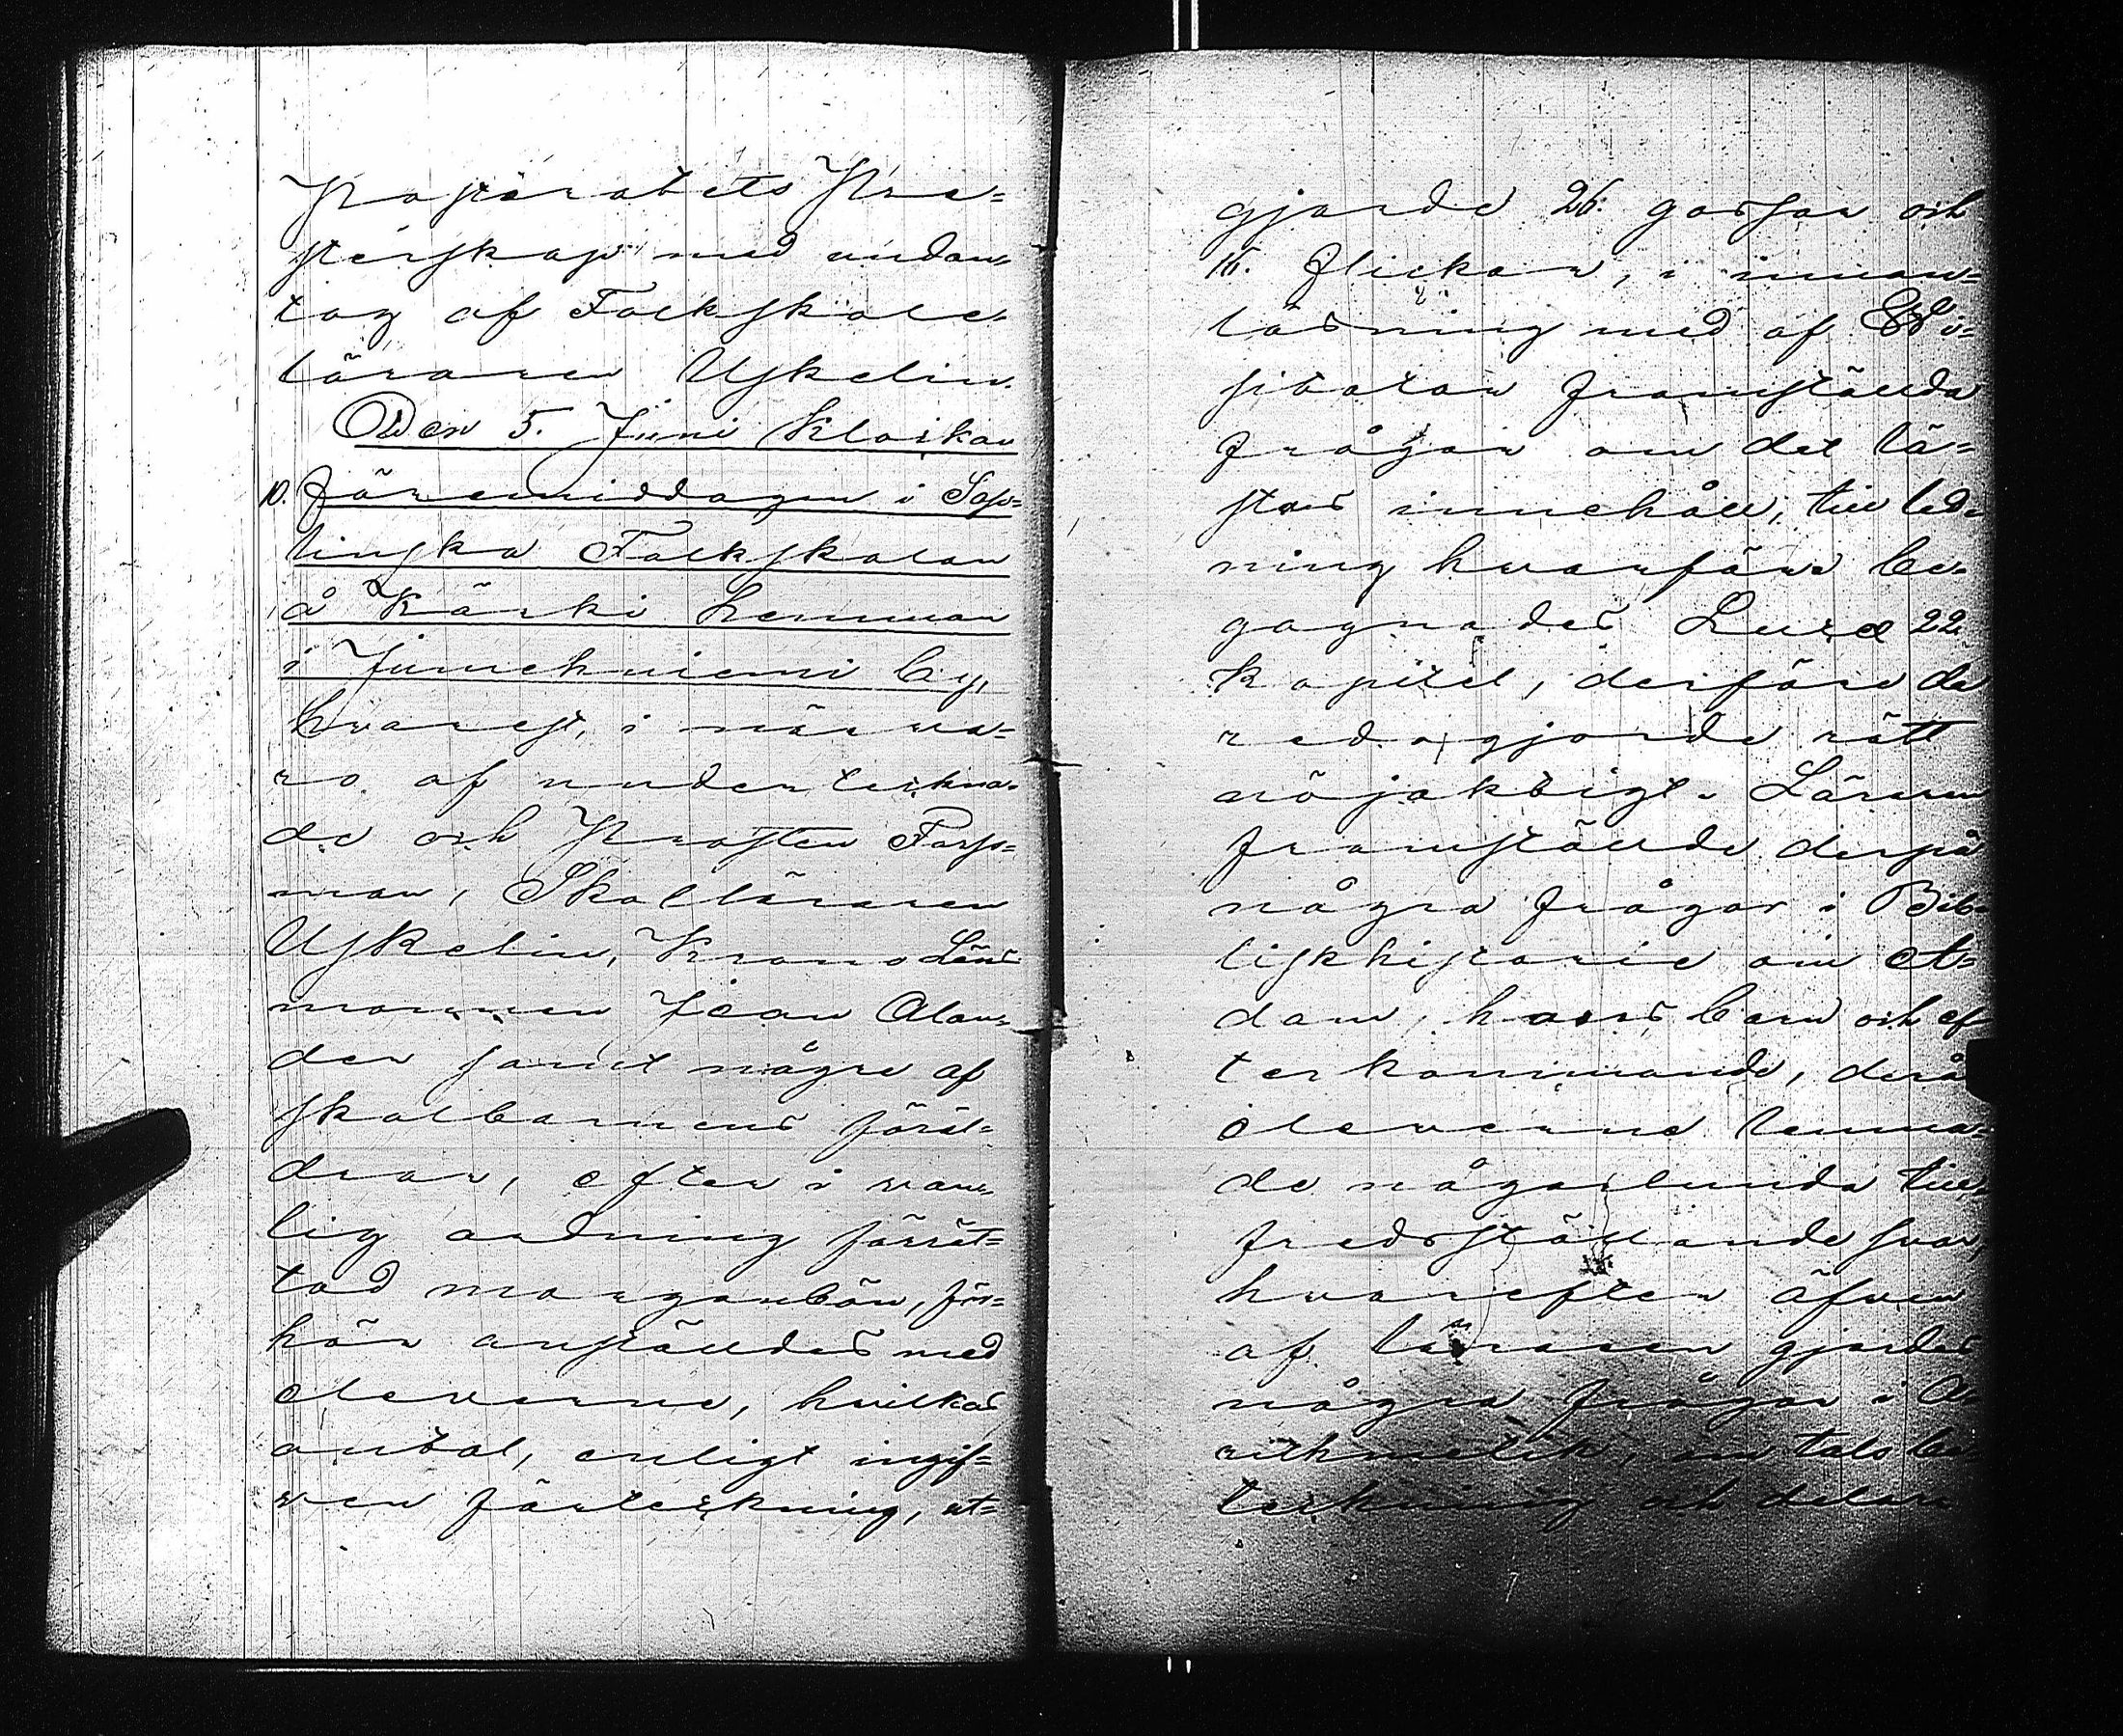 Pastoratets Pre=
sterskap med undan=
tag af Folkskole
läraren Uskelin.
Den 5. Juni klockan
10. föremiddagen i Sap=
linska Folkskolan
å Kärki hemman
i Jumekniemi by,
hvarest, i närva=
ro af underteckna=
de och Prosten Fors=
man, Skolläraren
Uskelin, Krono Läns=
mannen Jean Alan=
der samt några af
skolbarnens föräl=
drar, efter i van=
lig ordning förrät=
tad morgonbön, för=
hör anställdes med
eleverne, hvilkas
antal, enligt ingif=
ven förteckning, ut=
gjorde 26. gossar och
16. flickor, i innan=
läsning med af Wi=
sitator framställda
frågor om det lä=
stas innehåll, till led=
ning hvarföre be=
gagnades Lucæ 22.
kapitel, derföre de
redogjorde rätt
nöjaktigt. Läraren
framställde derpå
några frågor i Bib=
liskhistorie om A=
dam, hans barn och ef
terkommande, derå
eleverne lemna=
de någorlunda till=
fredsställande svar,
hvarefter äfven
af läraren gjordes
några frågor i A=
rithmetik, om tals be=
teckning och delar